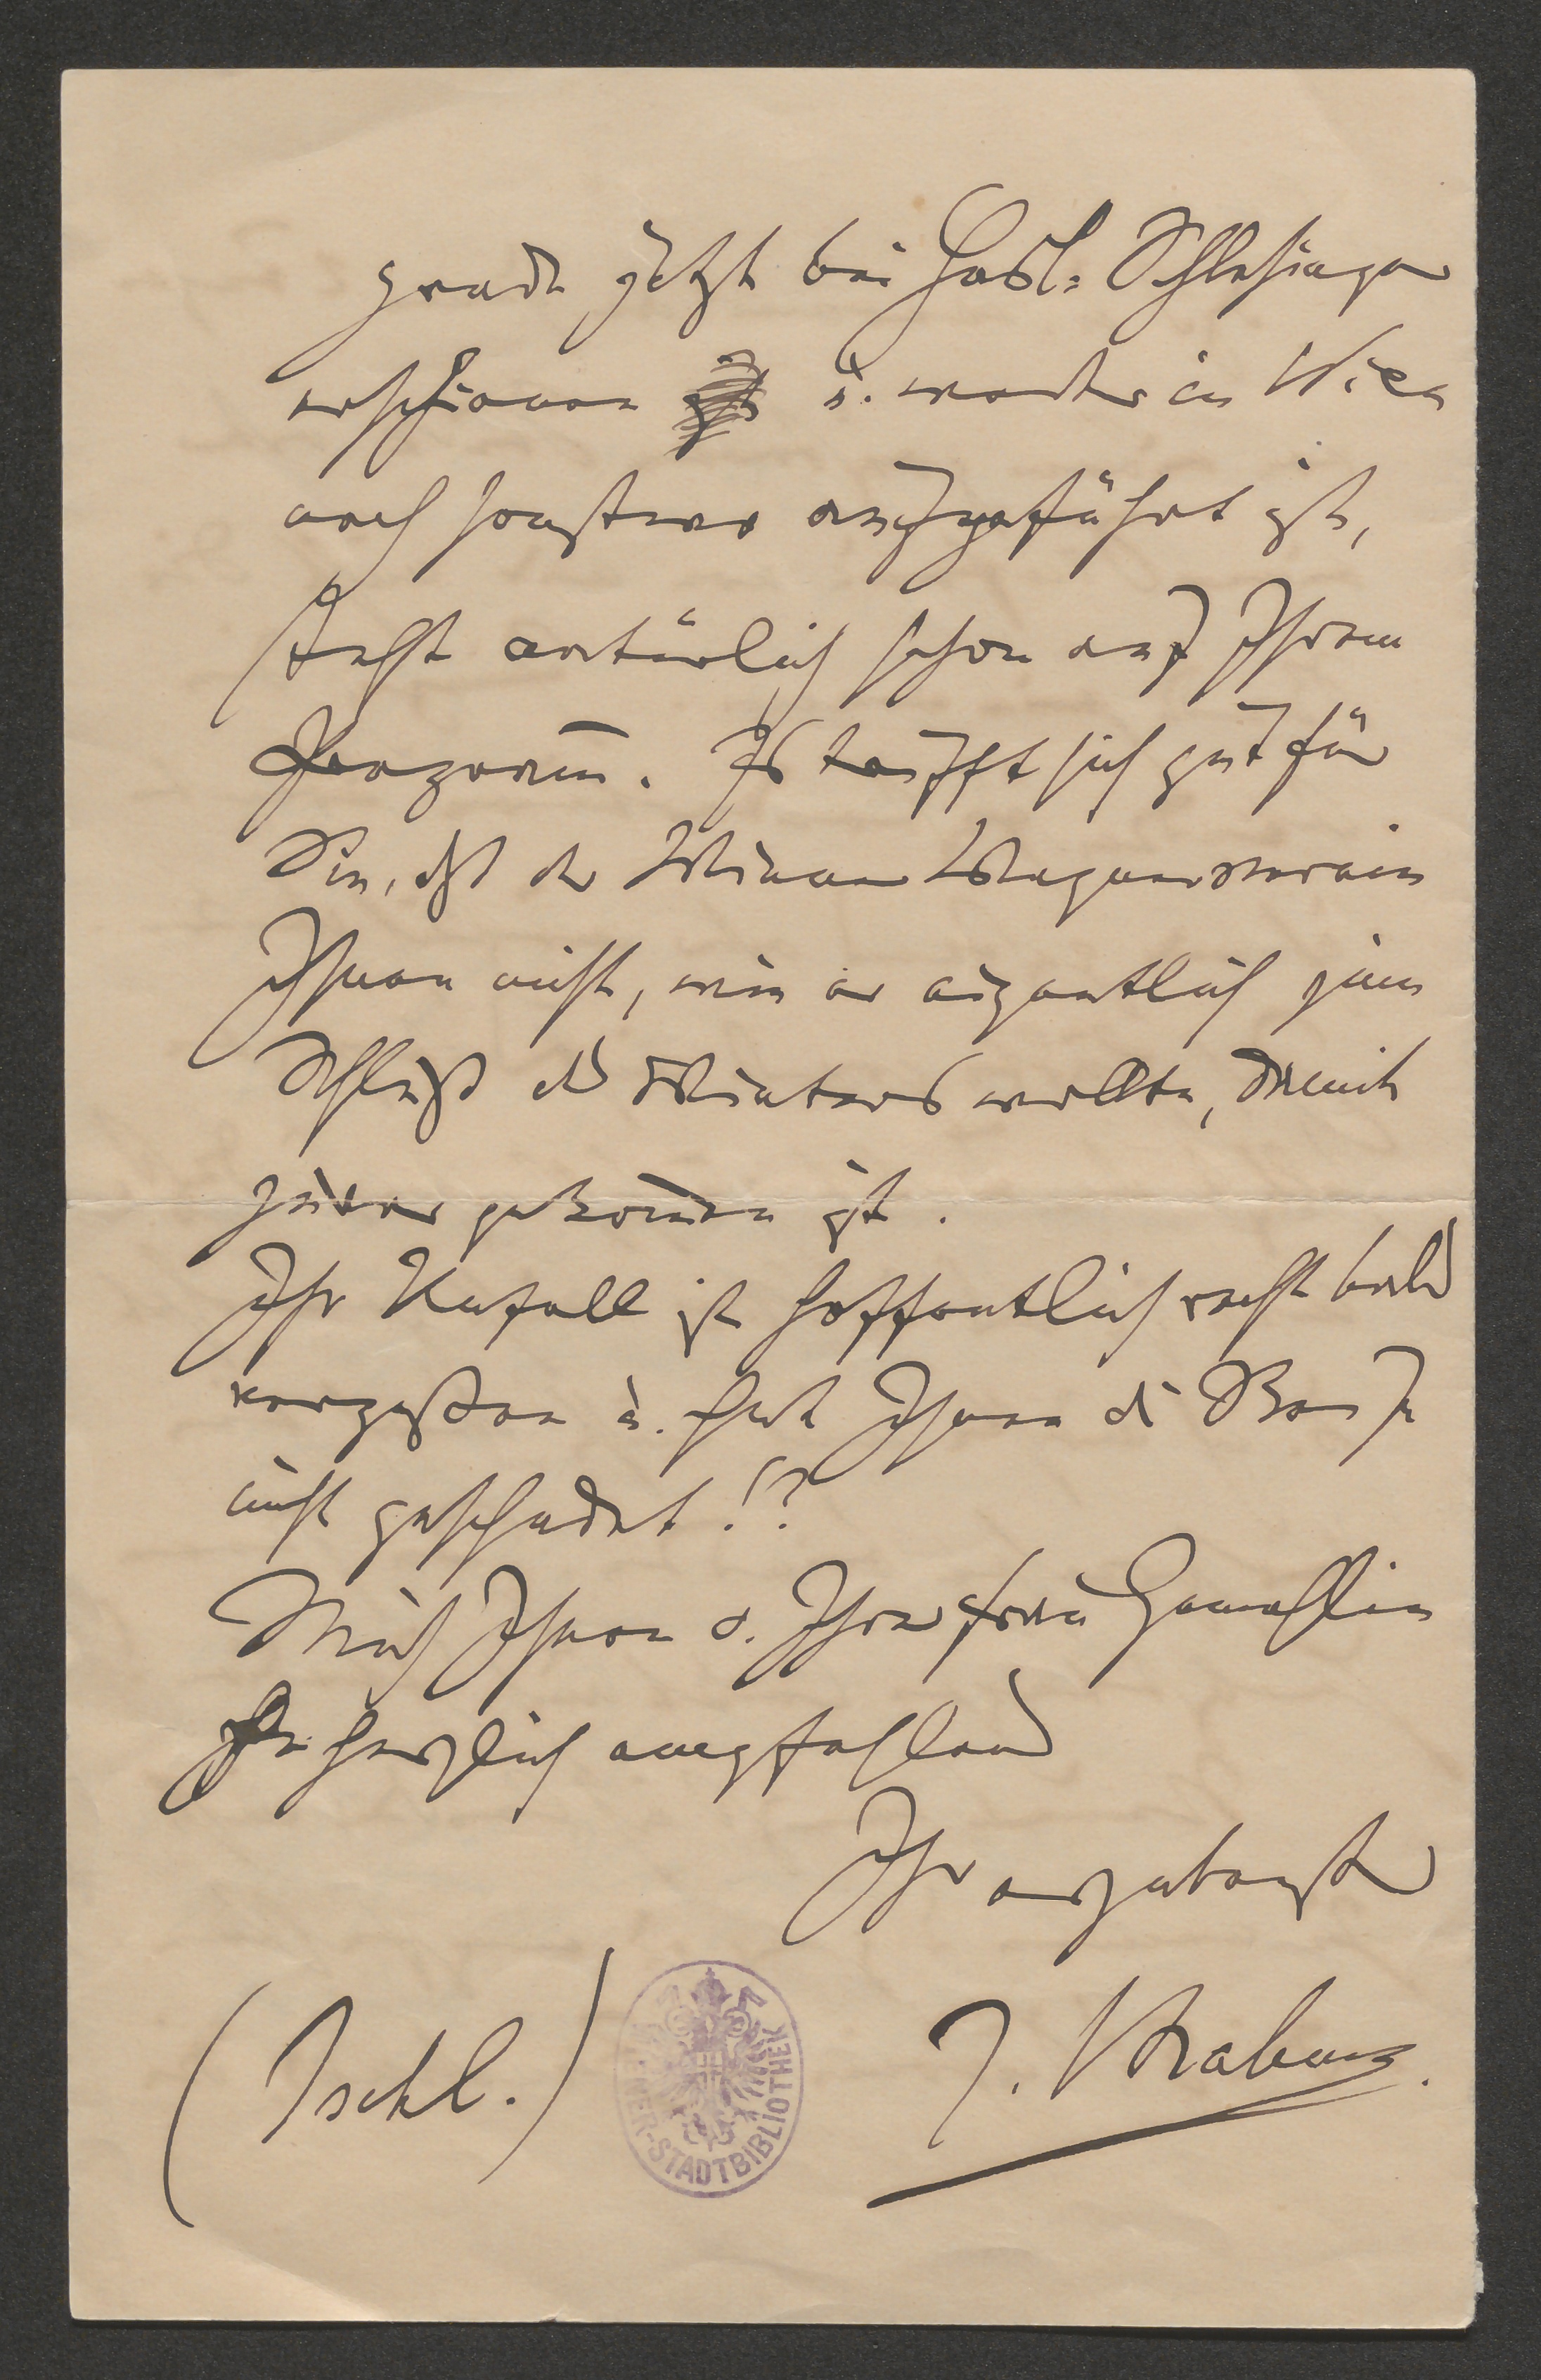 grade jetzt bei Hasl: Schlesinger
erschienen u. weder in Wien
noch sonstwo aufgeführt ist,
steht natürlich schon auf Ihrem
Program̅. Es trifft sich gut für
Sie, dß der Wiener Wagnerverein
Ihnen nicht, wie er eigentlich zum
Schluß des Winters wollte, damit
zuvor gekom̅en ist.
Ihr Unfall ist hoffentlich recht bald
vergessen u. hat Ihnen die
nicht geschadet!?
Mich Ihnen u. Ihrer Frau Gemahlin
herzlich empfehlend
Ihr ergebenster
J. Brahms.
(Ischl.)
WIENER-STADTBIBLIOTHEK